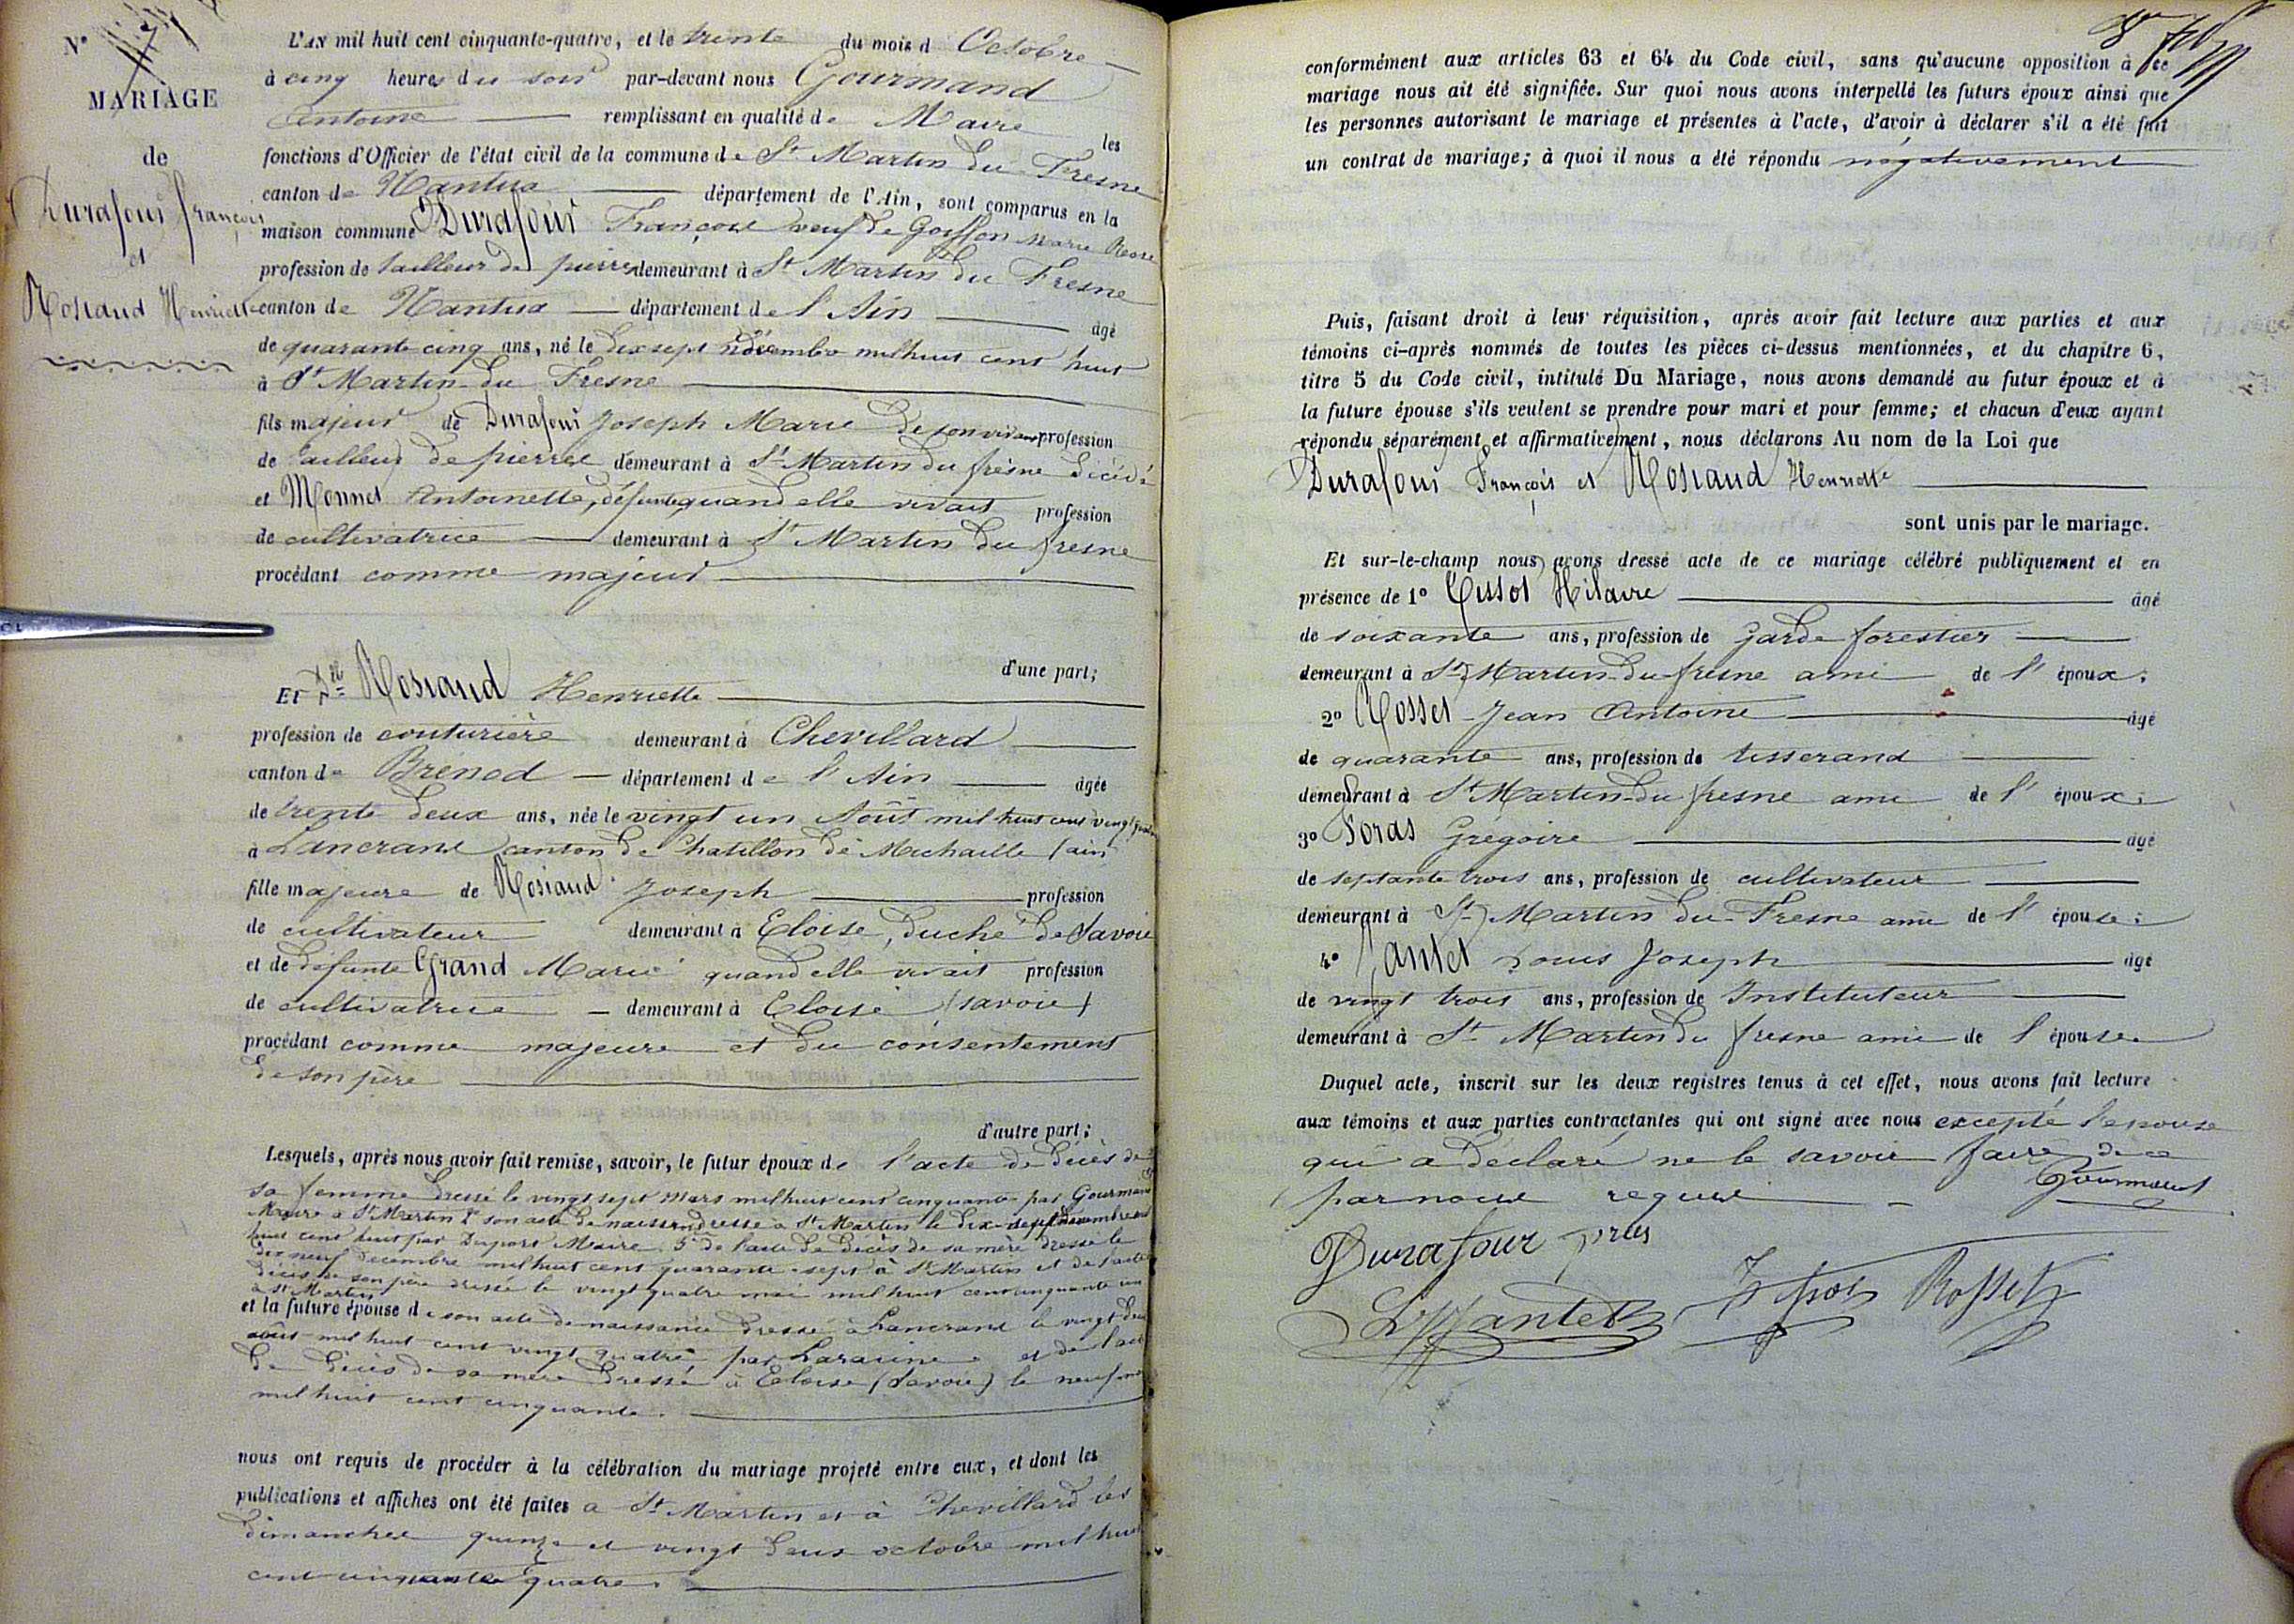 N° 7
MARIAGE
de
Durafour François
et
Rostand Henriette
L'AN mil huit cent cinquante-quatre, et le trente du mois d Octobre
à cinq heures du soir par-devant nous Gourmand
Antoine remplissant en qualité de Maire les
fonctions d'Officier de l'état civil de la commune de St Martin du Fresne
canton de Nantua département de l'Ain, sont comparus en la
maison commune Durafour François veuf de Goiffon Marie Rose
profession de tailleur de pierres demeurant à St Martin du Fresne
canton de Nantua département de l'Ain âgé
de quarante cinq ans, né le dix sept décembre mil huit cent huit
à St Martin du Fresne
fils majeur de Durafour Joseph Marie de son vivant profession
de tailleur de pierres demeurant à St Martin du fresne décédé
et Monnet Antoinette, défunte, quand elle vivait profession
de cultivatrice demeurant à St Martin du fresne
procédant comme majeur
d'une part;
ET Dlle Rostand Henriette
profession de couturière demeurant à Chevillard
canton de Brénod département de l'Ain âgée
de trente deux ans, née le vingt un Août mil huit cent vingt quatre
à Lancrans canton de Chatillon de Michaille (ain
fille majeure de Rostand Joseph profession
de cultivateur demeurant à Eloise, duché de Savoie
et de défunte Grand Marie quand elle vivait profession
de cultivatrice demeurant à Eloise (savoie)
procédant comme majeure et du consentement
de son père
d'autre part;
Lesquels, après nous avoir fait remise, savoir, le futur époux de l'acte de décès de
sa femme dressé le vingt sept mars mil huit cent cinquante par Gourmand
Maire à St Martin 2° son acte de naissance dressé à St Martin le dix-sept décembre mil
huit cent huit par Duport Maire 3° de l'acte de décès de sa mère dressé le
dix neuf décembre mil huit cent quarante-sept à St Martin et de l'acte
décès de son père dressé le vingt quatre mai mil huit cent cinquante un
à St Martin
et la future épouse de son acte de naissance dressé à Lancrans le vingt deux
août mil huit cent vingt quatre par et de l'acte
de décès de sa mère dressé à Eloise (Savoie) le neuf
mil huit cent cinquante.
nous ont requis de procéder à la célébration du mariage projeté entre eux, et dont les
publications et affiches ont été faites à St Martin et à Chevillard les
dimanches quinze et vingt deux octobre mil huit
cent cinquante quatre.
conformément aux articles 63 et 64 du Code civil, sans qu'aucune opposition à ce
mariage nous ait été signifiée. Sur quoi nous avons interpellé les futurs époux ainsi que
les personnes autorisant le mariage et présentes à l'acte, d'avoir à déclarer s'il a été fait
un contrat de mariage; à quoi il nous a été répondu négativement
Puis, faisant droit à leur réquisition, après avoir fait lecture aux parties et aux
témoins ci-après nommés de toutes les pièces ci-dessus mentionnées, et du chapitre 6,
titre 5 du Code civil, intitulé Du Mariage, nous avons demandé au futur époux et à
la future épouse s'ils veulent se prendre pour mari et pour femme; et chacun d'eux ayant
répondu séparément et affirmativement, nous déclarons Au nom de la Loi que
Durafour François et Rostand Henriette
sont unis par le mariage.
Et sur-le-champ nous avons dressé acte de ce mariage célébré publiquement et en
présence de 1° Tissot Hilaire âgé
de soixante ans, profession de garde forestier
demeurant à St Martin-du-fresne ami de l'époux;
2° Rosset Jean Antoine âgé
de quarante ans, profession de tisserand
demeurant à St Martin-du fresne ami de l'époux;
3° Foras Grégoire âgé
de septante trois ans, profession de cultivateur
demeurant à St Martin du-Fresne ami de l'épouse;
4° Jantet Louis Joseph âgé
de vingt trois ans, profession de Instituteur
demeurant à St Martin du fresne ami de l'épouse.
Duquel acte, inscrit sur les deux registres tenus à cet effet, nous avons fait lecture
aux témoins et aux parties contractantes qui ont signé avec nous excepté l'épouse
qui a déclaré ne le savoir faire de ce
par nous requise Gourmand
Durafour
LJJantet Tissot Rosset